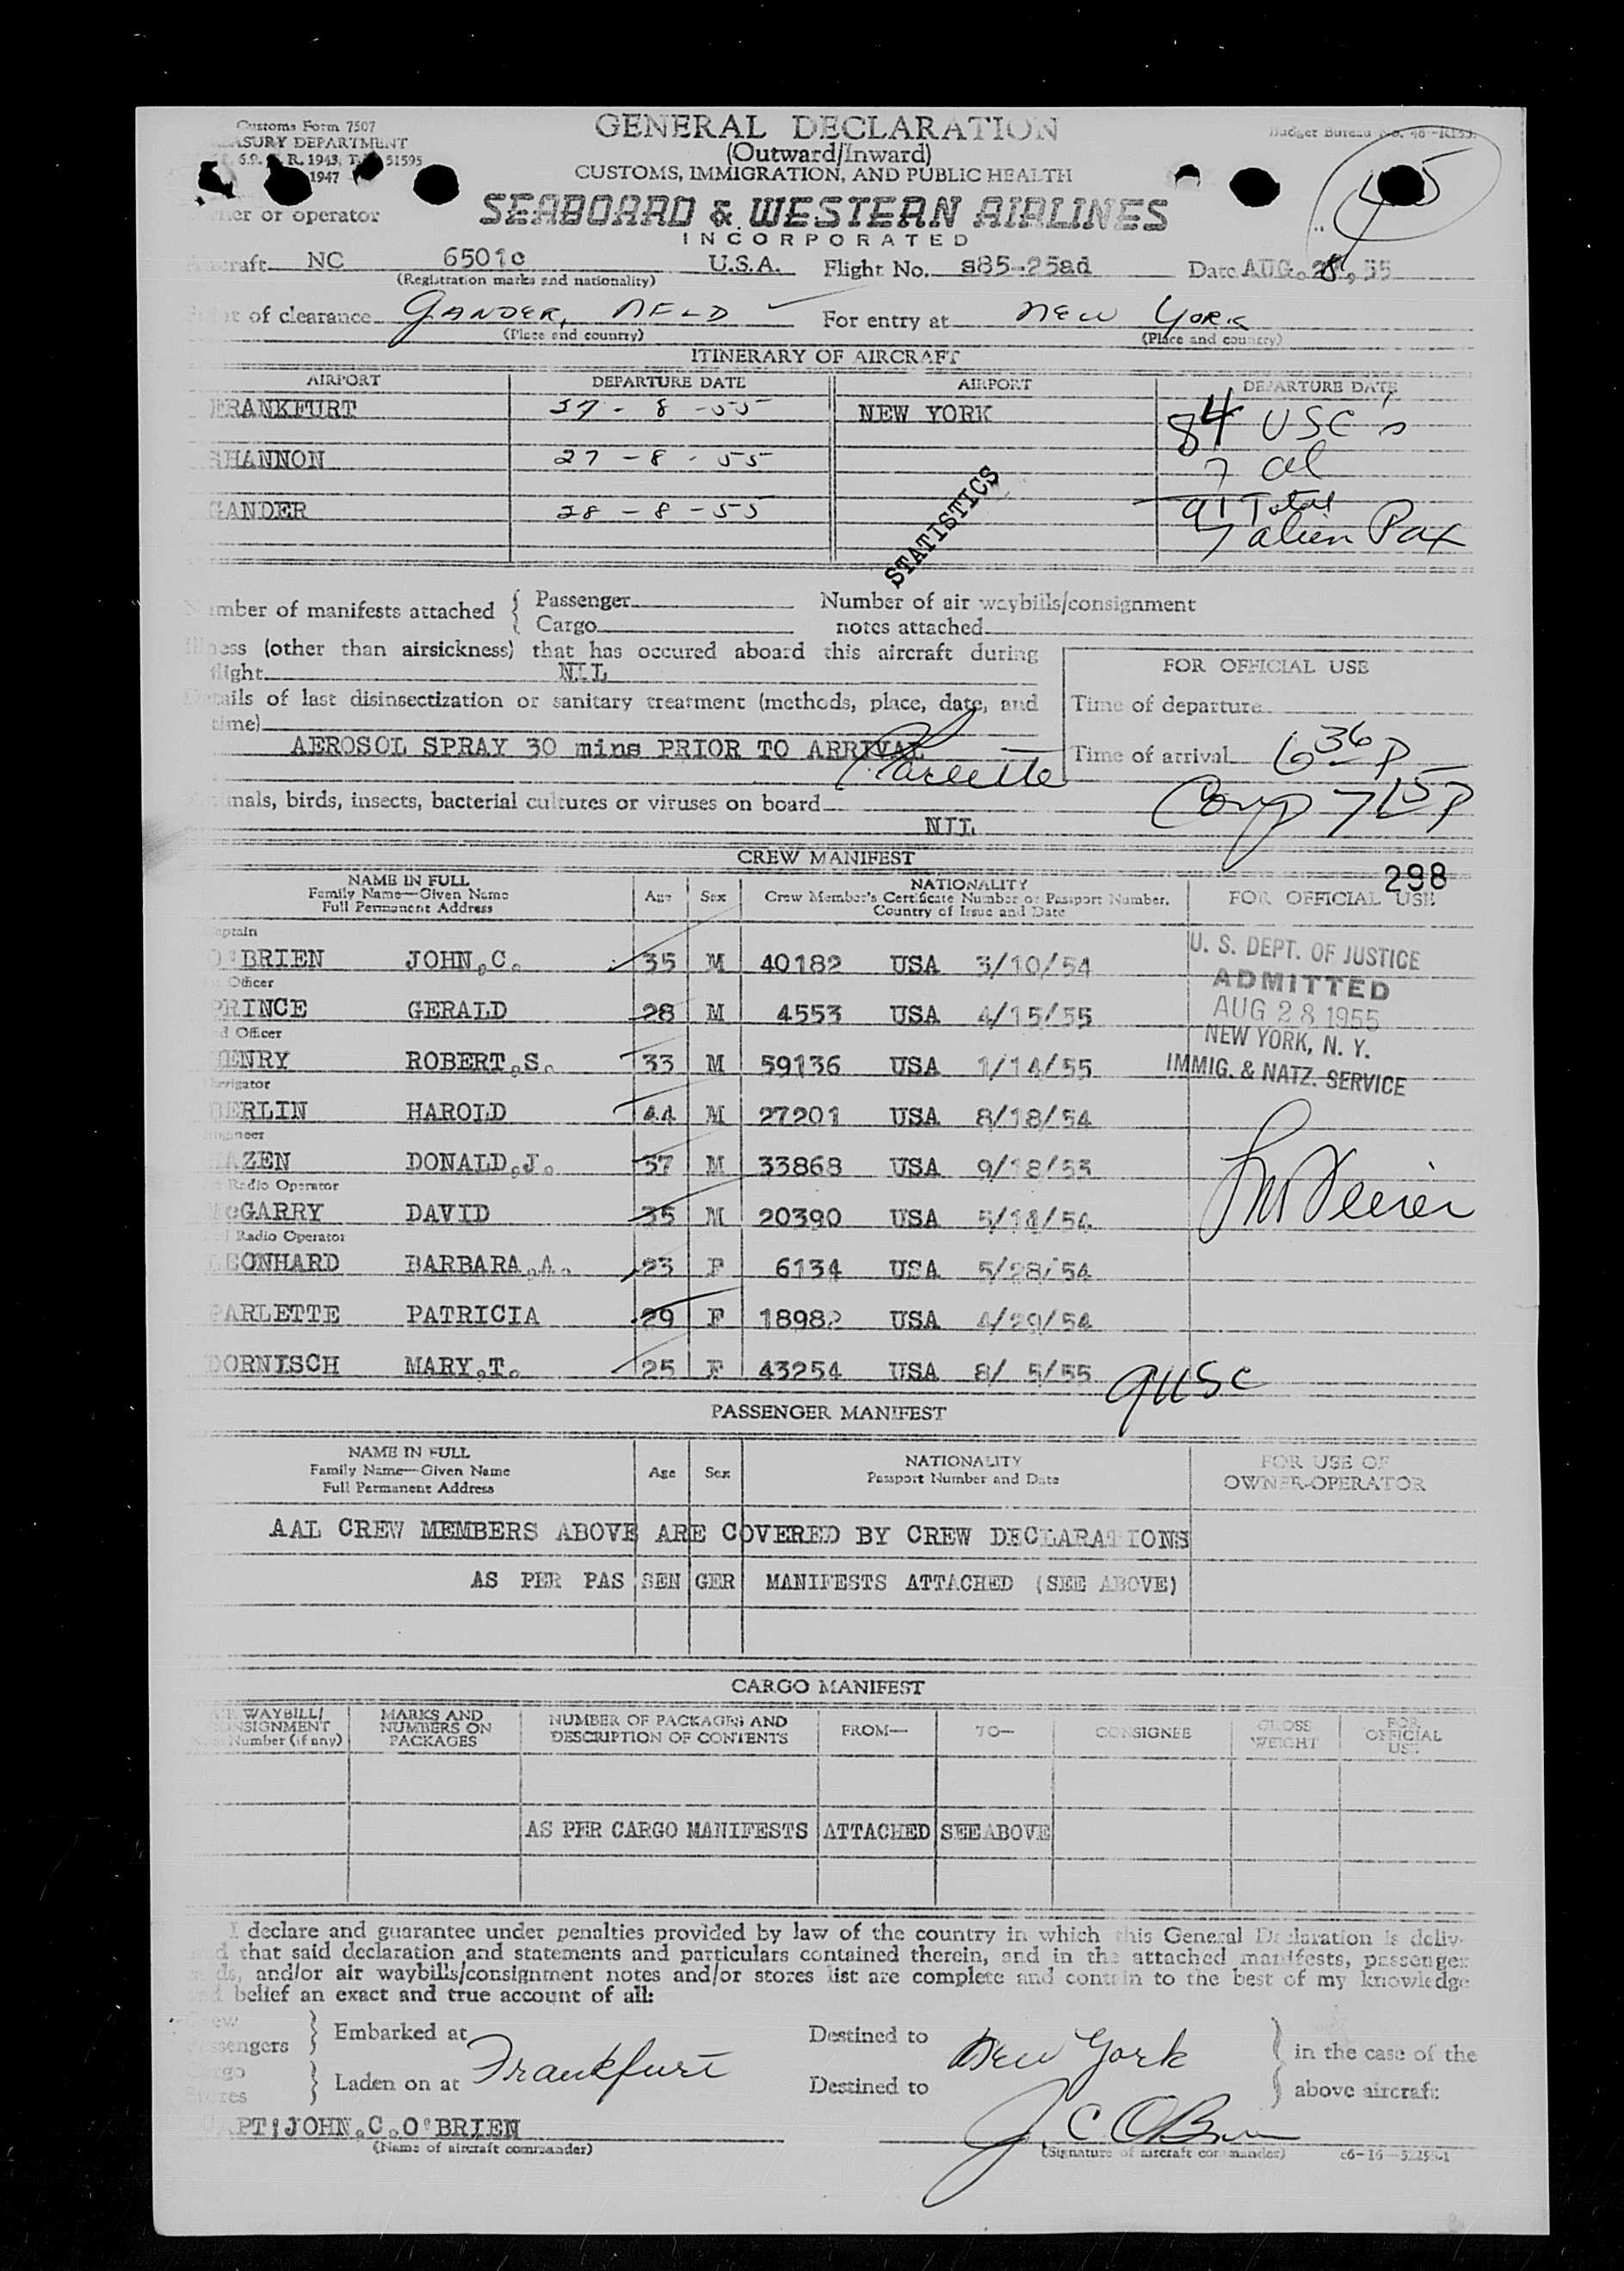 Customs Form 7507
ASURY DEPARTMENT
R. 1943, 51595
1947
GENERAL DECLARATION
(Outward/Inward)
CUSTOMS, IMMIGRATION, AND PUBLIC HEALTH
Budget Bureau No.
or operator
SEABOARD & WESTERN AIRLINES
INCORPORATED
NC 6501c U.S.A. Flight No. s85-25ad Date AUG. 28, 55
(Registration marks and nationality)
of clearance GANDER, NFLD For entry at NEW YORK
(Place and country) (Place and country)
ITINERARY OF AIRCRAFT
AIRPORT DEPARTURE DATE AIRPORT DEPARTURE DATE
FRANKFURT 27-8-55 NEW YORK 84 USC's
SHANNON 27-8-55 7 al
GANDER 28-8-55 91 Total
7 alien Pax
STATISTICS
Number of manifests attached { Passenger Number of air waybills/consignment
Cargo notes attached
Illness (other than airsickness) that has occured aboard this aircraft during
flight NIL
FOR OFFICIAL USE
Details of last disinsectization or sanitary treatment (methods, place, date, and
time)
Time of departure
AEROSOL SPRAY 30 mins PRIOR TO ARRIVAL
Parlette
Time of arrival 6 36 P
Comp 7 15 P
mals, birds, insects, bacterial cultures or viruses on board
NIL
CREW MANIFEST
298
NAME IN FULL
Family Name—Given Name
Full Permanent Address
Age Sex
NATIONALITY
Crew Member's Certificate Number or Passport Number.
Country of Issue and Date
FOR OFFICIAL USE
aptain
O'BRIEN JOHN.C. 35 M 40182 USA 3/10/54
Officer
PRINCE GERALD 28 M 4553 USA 4/15/55
d Officer
HENRY ROBERT.S. 33 M 59136 USA 1/14/55
Navigator
BERLIN HAROLD 44 M 27201 USA 8/18/54
Engineer
HAZEN DONALD.J. 37 M 33868 USA 9/18/53
Radio Operator
McGARRY DAVID 35 M 20390 USA 5/14/54
Radio Operator
LEONHARD BARBARA.A. 23 F 6134 USA 5/28/54
PARLETTE PATRICIA 29 F 18982 USA 4/29/54
DORNISCH MARY.T. 25 F 43254 USA 8/ 5/55
9 USC
U. S. DEPT. OF JUSTICE
ADMITTED
AUG 28 1955
NEW YORK, N. Y.
IMMIG. & NATZ. SERVICE
PASSENGER MANIFEST
NAME IN FULL
Family Name—Given Name
Full Permanent Address
Age Sex
NATIONALITY
Passport Number and Date
FOR USE OF
OWNER-OPERATOR
AAL CREW MEMBERS ABOVE ARE COVERED BY CREW DECLARATIONS
AS PER PAS SEN GER MANIFESTS ATTACHED (SEE ABOVE)
CARGO MANIFEST
WAYBILL/
CONSIGNMENT
Number (if any)
MARKS AND
NUMBERS ON
PACKAGES
NUMBER OF PACKAGES AND
DESCRIPTION OF CONTENTS
FROM— TO— CONSIGNEE
GROSS
WEIGHT
FOR
OFFICIAL
USE
AS PER CARGO MANIFESTS ATTACHED SEE ABOVE
I declare and guarantee under penalties provided by law of the country in which this General Declaration is deliv-
d that said declaration and statements and particulars contained therein, and in the attached manifests, passenger
ds, and/or air waybills/consignment notes and/or stores list are complete and contain to the best of my knowledge
and belief an exact and true account of all:
Crew
Passengers } Embarked at Frankfurt Destined to New York } in the case of the
Cargo
Stores } Laden on at Destined to } above aircraft:
CAPT:JOHN.C.O'BRIEN J C OBrien
(Name of aircraft commander) (Signature of aircraft commander)